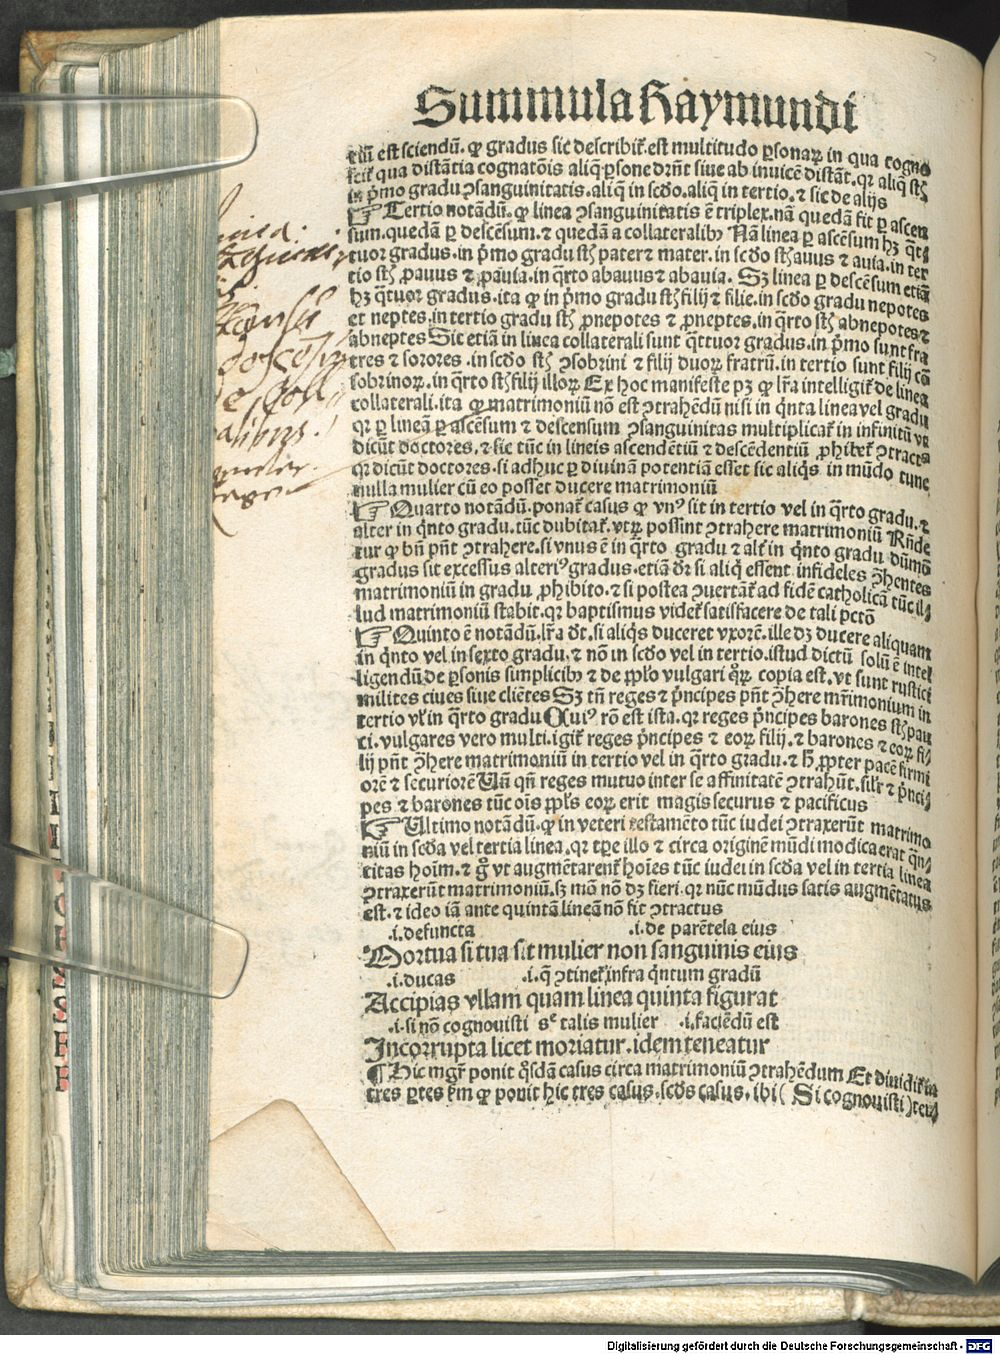 Summula Raymundi
tiū est sciendū. ꝙ gradus sic describit̄. est multitudo ꝑsonaꝝ in qua cogno
scit̄ qua distātia cognatōis aliq̄ ꝑsone dr̄nt siue ab inuicē distāt. qꝛ aliq̄ sꝫ
in p̄mo gradu ꝯsanguinitatis. aliq̄ in scd̄o. aliq̄ in tertio. ⁊ sic de alijs
☞ Tertio notādū. ꝙ linea ꝯsanguinitatis ē triplex. nā quedā fit ꝑ ascen
sum. quedā ꝑ descēsum. ⁊ quedā a collateralibꝰ Nā linea ꝑ ascēsum hꝫ q̄t
tuor gradus. in p̄mo gradu sꝫ pater ⁊ mater. in scd̄o sꝫ auus ⁊ auia. in ter
tio sꝫ ꝓauus ⁊ ꝓauia. in q̄rto abauus ⁊ abauia. Sꝫ linea ꝑ descēsum etiā
hꝫ q̄ttuor gradus. ita ꝙ in p̄mo gradu sꝫ filij ⁊ filie. in scd̄o gradu nepotes
et neptes. in tertio gradu sꝫ ꝓnepotes ⁊ ꝓneptes. in q̄rto sꝫ abnepotes ⁊
abneptes Sic etiā in linea collaterali sunt q̄ttuor gradus. in p̄mo sunt fra
tres ⁊ sorores. in scd̄o sꝫ ꝯsobrini ⁊ filij duoꝝ fratrū. in tertio sunt filij cō
sobrinoꝝ. in q̄rto sꝫ filij illoꝝ Ex hoc manifeste pꝫ ꝙ lr̄a intelligit̄ de linea
collaterali. ita ꝙ matrimoniū nō est ꝯtrahēdū nisi in q̄nta linea vel gradu
qꝛ ꝑ lineā ꝑ ascēsum ⁊ descensum ꝯsanguinitas multiplicat̄ in infinitū vt
dicūt doctores. ⁊ sic tūc in lineis ascendētiū ⁊ descēdentiū ꝓhibet̄ ꝯtractꝰ
qꝛ dicūt doctores. si adhuc ꝑ diuinā potentiā esset sic aliq̄s in mūdo tunc
nulla mulier cū eo posset ducere matrimoniū
☞ Quarto notādū. ponat̄ casus ꝙ vnꝰ sit in tertio vel in q̄rto gradu. ⁊
alter in q̄nto gradu. tūc dubitat̄. vtꝝ possint ꝯtrahere matrimoniū Rn̄de
tur ꝙ bn̄ pn̄t ꝯtrahere. si vnus ē in q̄rto gradu ⁊ alt̄ in q̄nto gradu dūmō
gradus sit excessus alteriꝰ gradus. etiā dr̄ si aliq̄ essent infideles ꝯhentes
matrimoniū in gradu ꝓhibito. ⁊ si postea ꝯuertāt̄ ad fidē catholicā tūc il⸗
lud matrimoniū stabit. qꝛ baptismus videt̄ satisfacere de tali pctō
☞ Quinto ē notādū. lr̄a dt̄. si aliq̄s duceret vxorē. ille dꝫ ducere aliquam
in q̄nto vel in sexto gradu. ⁊ nō in scd̄o vel in tertio. istud dictū solū ē intel
ligendū de ꝑsonis simplicibꝰ ⁊ de ppl̄o vulgari q̄ꝝ copia est. vt sunt rustici
milites ciues siue cliētes Sꝫ tn̄ reges ⁊ p̄ncipes pn̄t ꝯhere mr̄imonium in
tertio vl̄ in q̄rto gradu Cuiꝰ rō est ista. qꝛ reges p̄ncipes barones sꝫ pau
ci. vulgares vero multi. igit̄ reges p̄ncipes ⁊ eoꝝ filij. ⁊ barones ⁊ eoꝝ fi⸗
lij pn̄t ꝯhere matrimoniū in tertio vel in q̄rto gradu. ⁊ h̄ ꝓpter pacē firmi
orē ⁊ securiorē Vn̄ qn̄ reges mutuo inter se affinitatē ꝯtrahūt. silr̄ ⁊ p̄nci⸗
pes ⁊ barones tūc oīs ppl̄s eoꝝ erit magis securus ⁊ pacificus
☞ Ultimo notādū. ꝙ in veteri testamēto tūc iudei ꝯtraxerūt matrimo
niū in scd̄a vel tertia linea. qꝛ tꝑe illo ⁊ circa originē mūdi modica erat q̄n⸗
titas hoīm. ⁊ gͦ vt augmētarent̄ hoīes tūc iudei in scd̄a vel in tertia linea
ꝯtraxerūt matrimoniū. sꝫ mō nō dꝫ fieri. qꝛ nūc mūdus satis augmētatus
est. ⁊ ideo iā ante quintā lineā nō fit ꝯtractus
.i. defuncta .i. de parētela eius
Mortua si tua sit mulier non sanguinis eius
.i. ducas .i. q̄ ꝯtinet̄ infra q̄ntum gradū
Accipias vllam quam linea quinta figurat
.i. si nō cognouisti sᵉ talis mulier .i. faciēdū est
Incorrupta licet moriatur. idem teneatur
¶ Hic mgr̄ ponit q̄sdā casus circa matrimoniū ꝯtrahēdum Et diuidit̄ in
tres ꝑtes s̄m ꝙ ponit hic tres casus. scd̄s casus. ibi (Si cognouisti) ter⸗
Digitalisierung gefördert durch die Deutsche Forschungsgemeinschaft - DFG